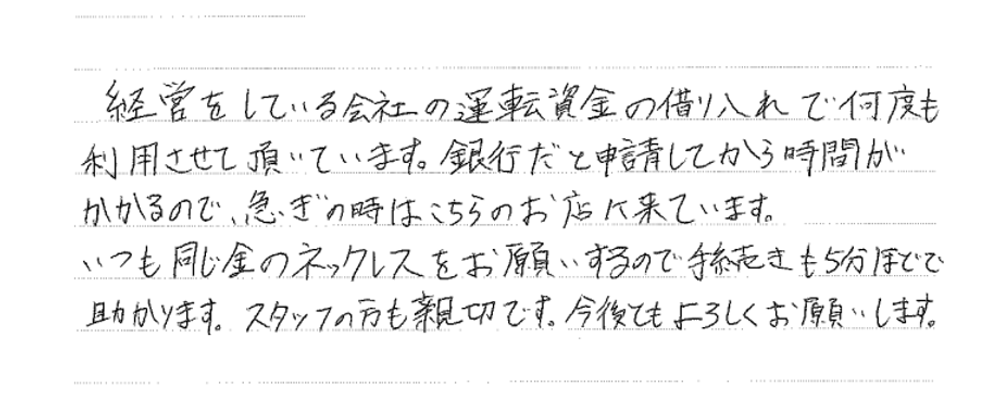 経営をしている会社の運転資金の借り入れで何度も
利用させて頂いています。銀行だと申請してから時間が
かかるので、急ぎの時はこちらのお店に来ています。
いつも同じ金のネックレスをお願いするので手続きも5分ほどで
助かります。スタッフの方も親切です。今後ともよろしくお願いします。